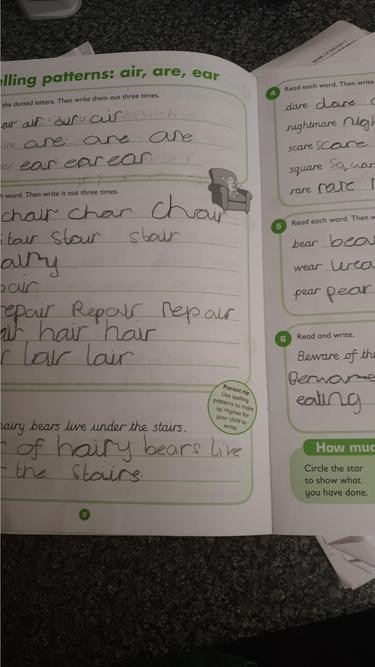 elling patterns: air, are, ear
the dotted letters. Then write them out three times.
air air air air
are are are are
ear ear ear
word. Then write it out three times.
chair char chair
stair stair
airy
air
repair Repair repair
hair hair
lair lair
Parent tip
Use spelling
patterns to make
up rhymes for
your child to
write.
hairy bears live under the stairs.
of hairy bears live
the Stairs.
8
4 Read each word. Then write
dare dare
nightmare nigh
scare scare
square Squar
rare rare
5 Read each word. Then w
bear bea
wear wea
pear pear
6 Read and write.
Beware of the
Beware
eating
How muc
Circle the star
to show what
you have done.